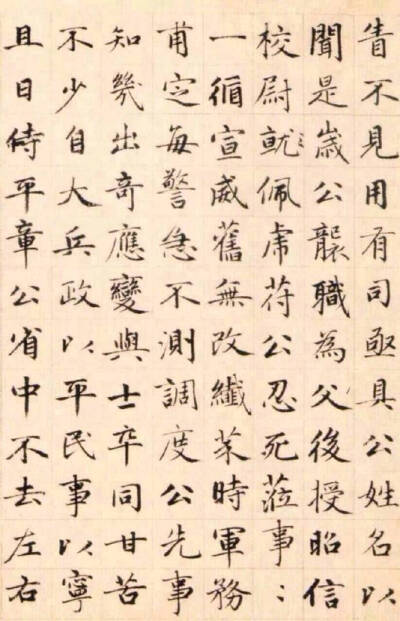 眚不見用有司亟具公姓名以
聞是歲公襲職為父後授昭信
校尉就佩虎符公忍死蒞事〻
一循宣威舊無改纖芥時軍務
甫定每警急不測調度公先事
知幾出奇應變與士卒同甘苦
不少自大兵政以平民事以寧
且日侍平章公省中不去左右